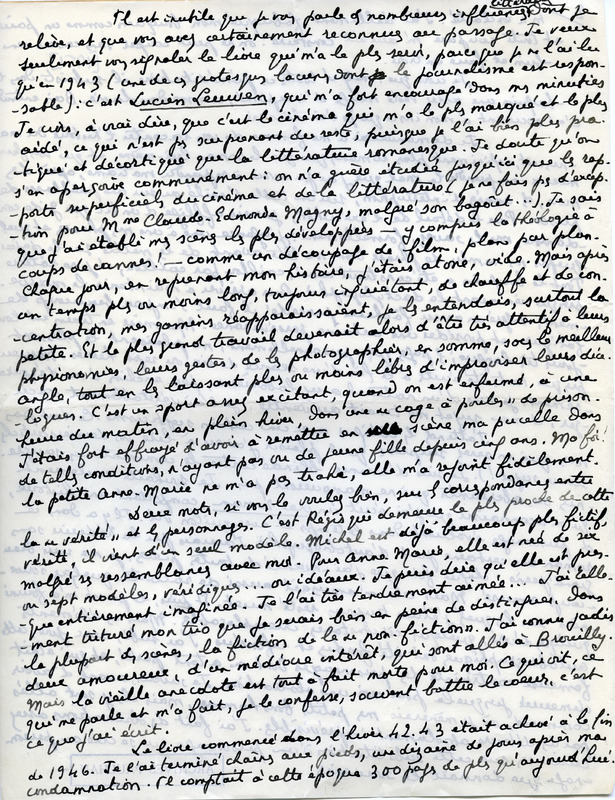 littéraires
Il est inutile que je vous parle de nombreuses influences dont je
relève, et que vous avez certainement reconnues au passage. Je veux
seulement vous signaler le livre qui m'a le plus servi, parce que je ne l'ai lu
qu'en 1943 (une de ces grotesques lacunes dont le journalisme est respon-
-sable) : c'est Lucien Leuwen, qui m'a fort encouragé dans mes minuties
Je crois, à vrai dire, que c'est le cinéma qui m'a le plus marqué et le plus
aidé, ce qui n'est pas surprenant du reste, puisque je l'ai bien plus pra-
-tiqué et décortiqué que la littérature romanesque. Je doute qu'on
s'en aperçoive communément : on n'a guère étudié jusqu'ici que les rap-
-ports superficiels du cinéma et de la littérature (je ne fais pas d'excep-
-tion pour Mme Claude-Edmonde Magny, malgré son bagout...). Je sais
que j'ai établi mes scènes les plus développées – y compris la théologie à
coups de cannes ! – comme un découpage de film, plans par plan.
Chaque jour, en reprenant mon histoire, j'étais atone, vide. Mais après
un temps plus ou moins long, toujours inquiétant, de chauffe et de con-
-centration, mes gamins réapparaissaient, je les entendais, surtout la
petite. Et le plus grand travail devenait alors d'être très attentif à leurs
physionomies, leurs gestes, de les photographier, en somme, sous le meilleur
angle, tout en les laissant plus ou moins libres d'improviser leurs dia-
-logues. C'est un sport assez excitant, quand on est enfermé, à une
heure du matin, en plein hiver, dans une « cage à poules » de prison.
J'étais fort effrayé d'avoir à remettre en scène ma pucelle dans
de telles conditions, n'ayant pas vu de jeune fille depuis cinq ans. Ma foi !
la petite Anne-Marie ne m'a pas trahi, elle m'a rejoint fidèlement.
Deux mots, si vous le voulez bien, sur les correspondances entre
la « vérité » et les personnages. C'est Régis qui demeure le plus proche de cette
vérité, il vient d'un seul modèle. Michel est déjà beaucoup plus fictif
malgré ses ressemblances avec moi. Pour Anne-Marie, elle est née de six
ou sept modèles, véridiques... ou idéaux. Je puis dire qu'elle est pres-
-que entièrement imaginée. Je l'ai très tendrement aimée... J'ai telle-
-ment trituré mon trio que je serais bien en peine de distinguer, dans
la plupart des scènes, la fiction de la « non-fiction ». J'ai connu jadis
deux amoureux, d'un médiocre intérêt, qui sont allés à Brouilly.
Mais la vieille anecdote est tout à fait morte pour moi. Ce qui vit, ce
qui me parle et m'a fait, je le confesse, souvent battre le coeur, c'est
ce que j'ai écrit.
Le livre commencé dans l'hiver 42.43 était achevé à la fin
de 1946. Je l'ai terminé chaînes aux pieds, une dizaine de jours après ma
condamnation. Il comptait à cette époque 300 pages de plus qu'aujourd'hui.